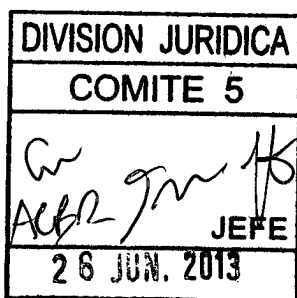 DIVISION JURIDICA
COMITE 5
JEFE
26 JUN. 2013